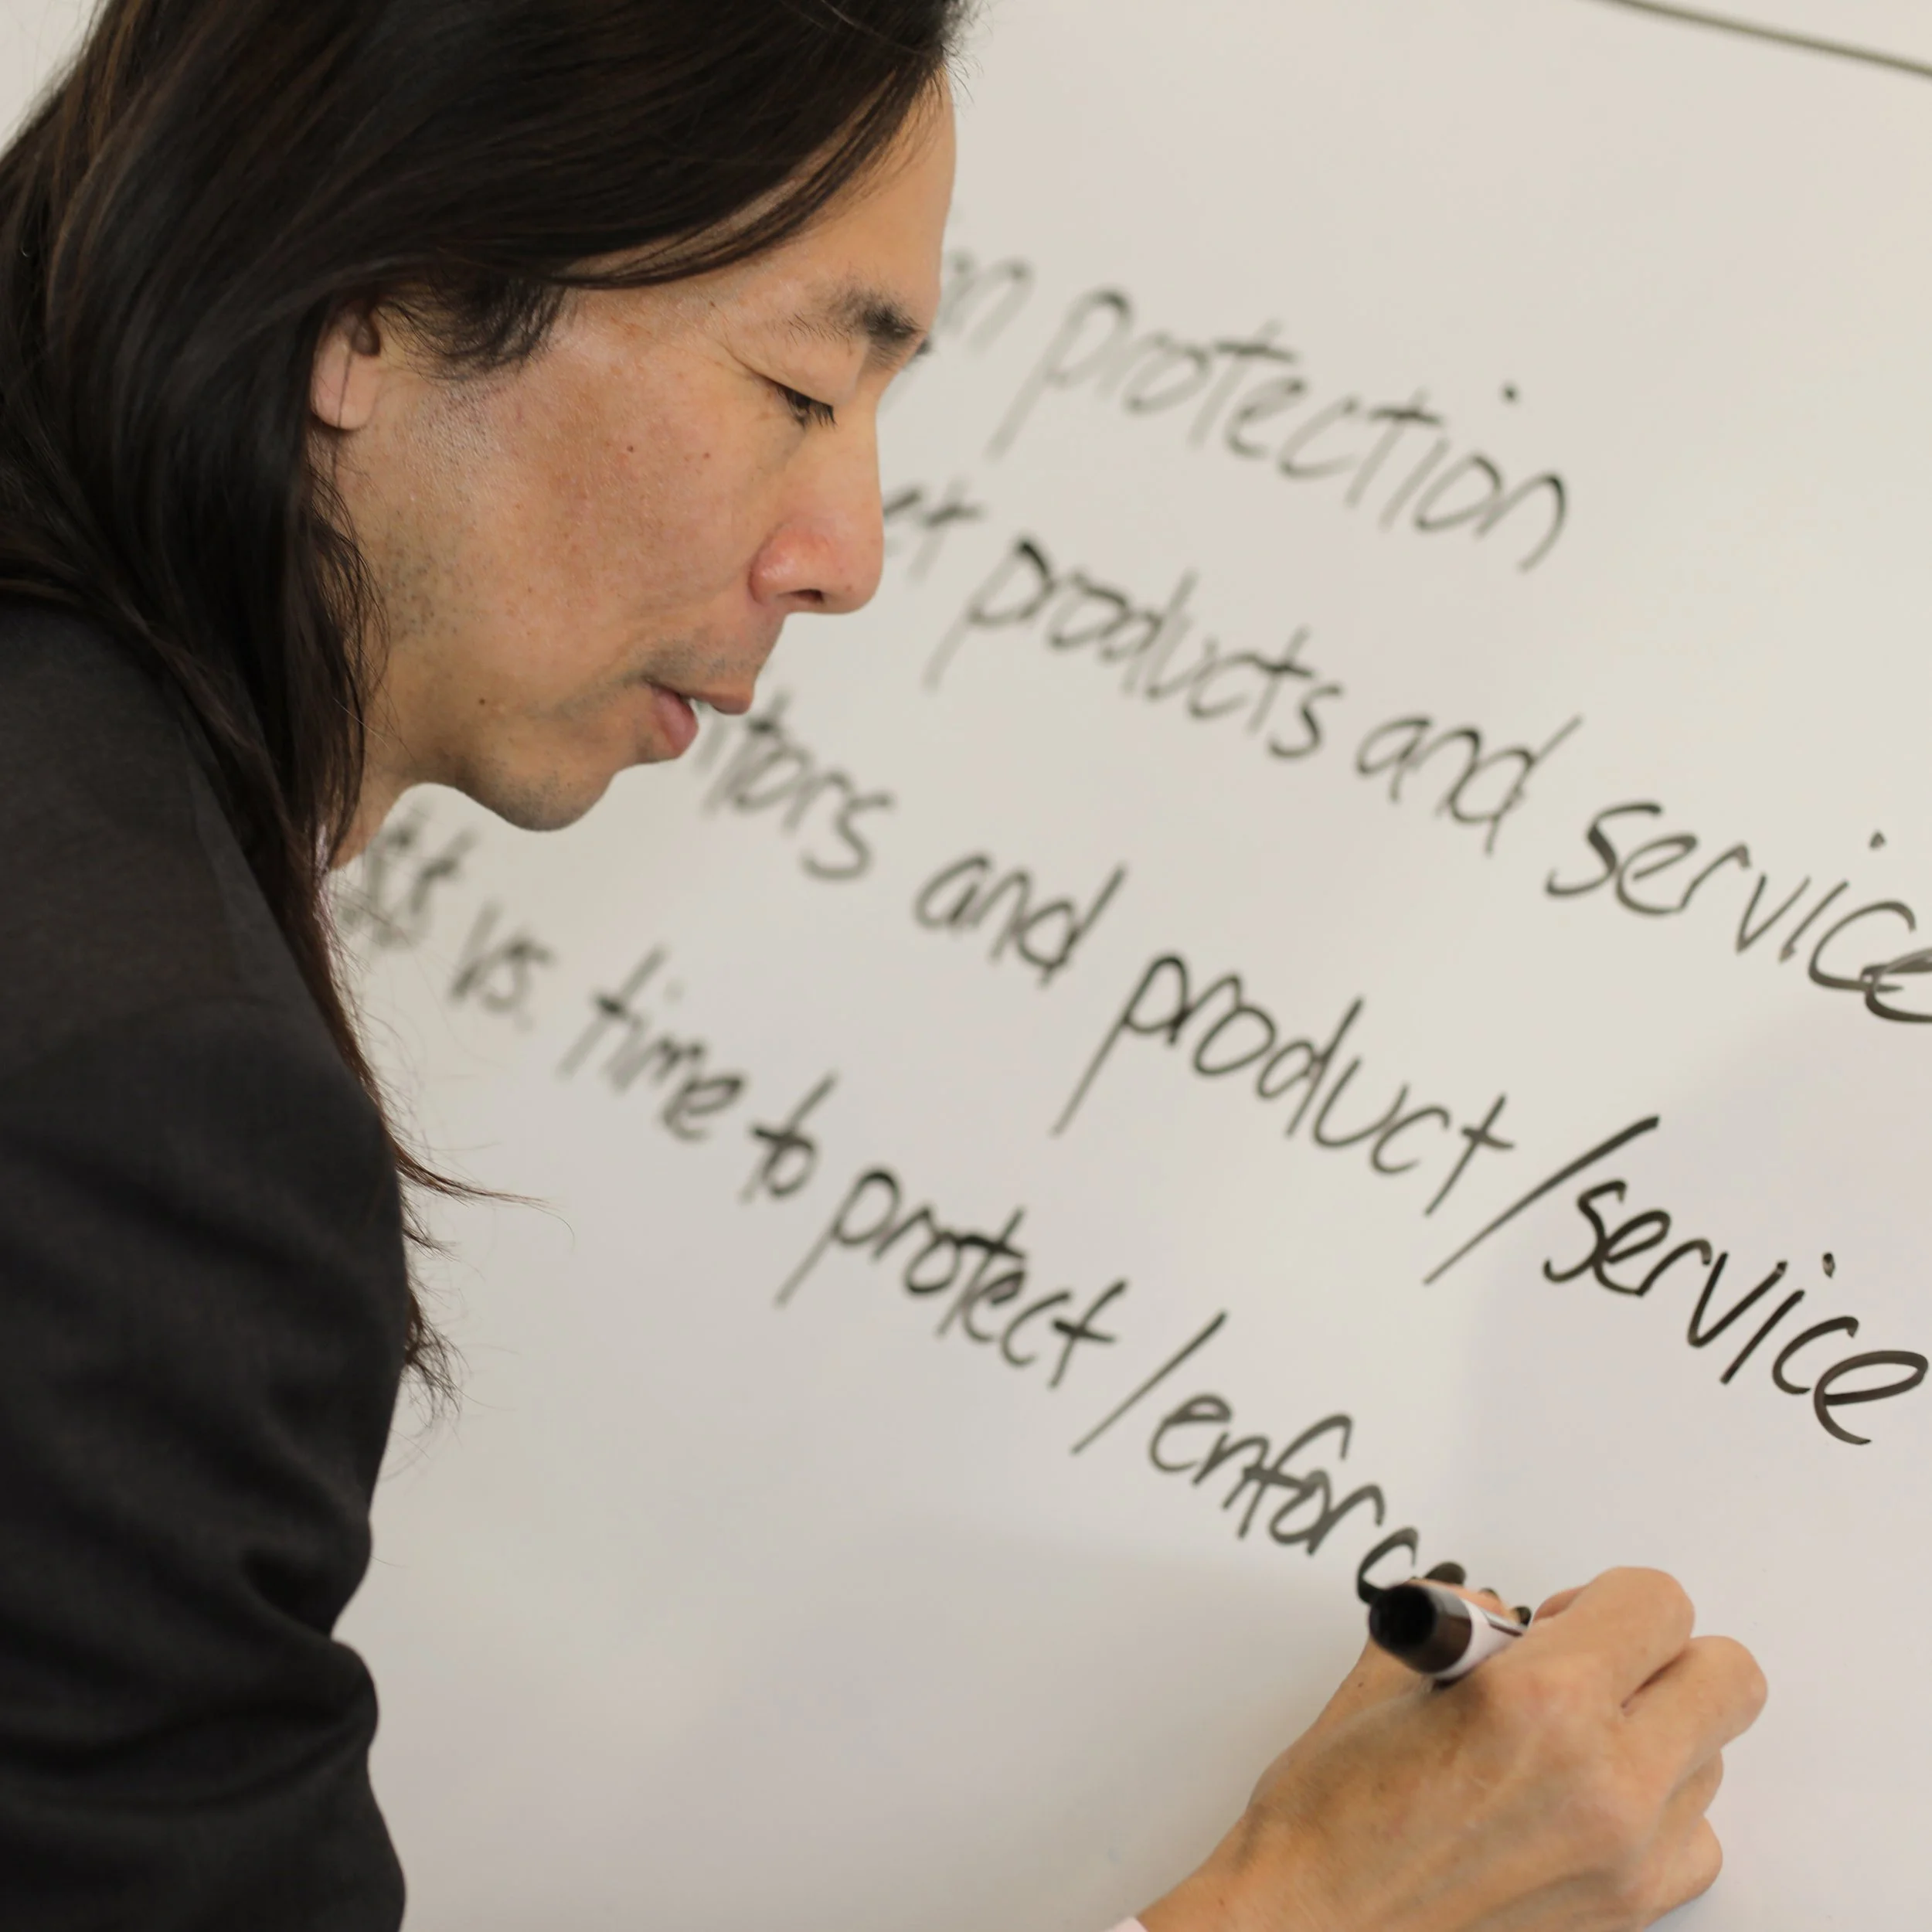 protection
products and service
and product/service
vs. time to protect/enforce